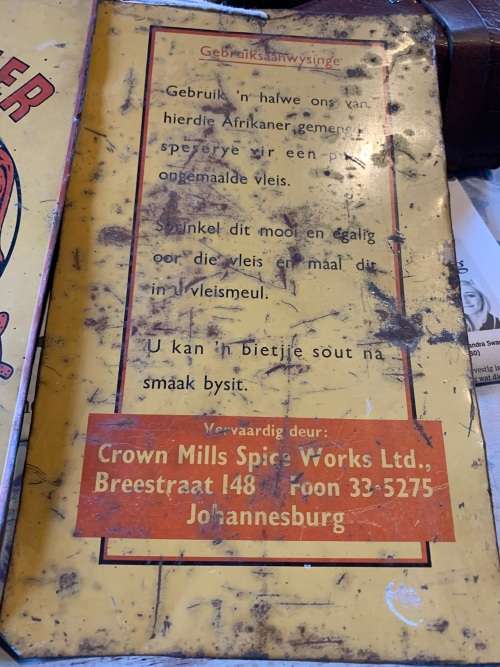 LER
Gebruiksaanwysinge
Gebruik 'n halwe ons van
hierdie Afrikaner gemeng
speserye vir een
ongemaalde vleis.
Sprinkel dit mooi en egalig
oor die vleis en maal dit
in u vleismeul.
U kan 'n bietjie sout na
smaak bysit.
Vervaardig deur:
Crown Mills Spice Works Ltd.,
Breestraat 148 Foon 33-5275
Johannesburg
andra Swa